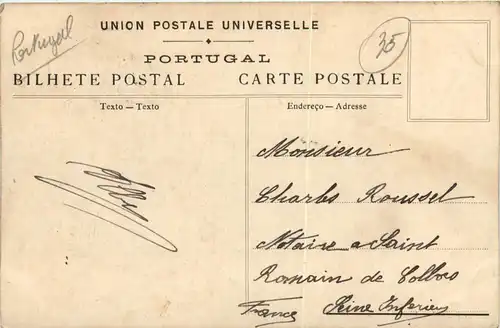 Portugal
UNION POSTALE UNIVERSELLE
35
PORTUGAL
BILHETE POSTAL CARTE POSTALE
Texto — Texto
Endereço — Adresse
Monsieur
Charles Roussel
Notaire a Saint
Romain de Colbos
France Seine Inferieu